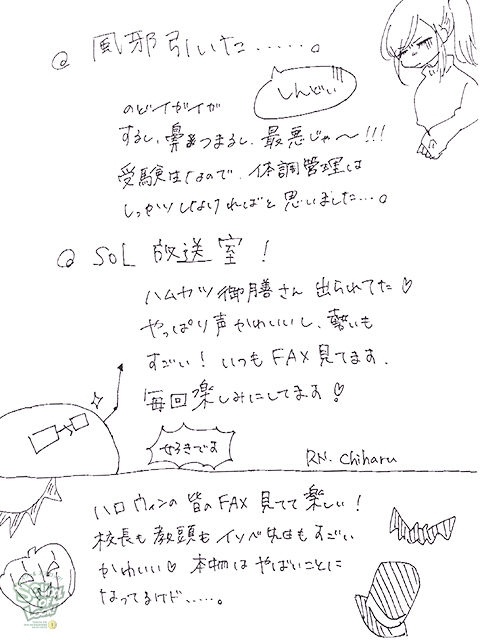 @ 風邪引いた……。
しんどい!!!
のどイガイガ
するし、鼻もつまるし、最悪じゃ〜!!!
受験生なので、体調管理は
しっかりしなければと思いました…。
@ SOL 放送室!
ハムカツ御膳さん 出られてた♡
やっぱり声かわいいし、勢いも
すごい!いつもFAX見てます。
毎回楽しみにしてます♡
好きです
RN. Chiharu
ハロウィンの皆のFAX見てて楽しい!
校長も教頭もイソベ先生もすごい
かわいい♡ 本物はやばいことに
なってるけど……。